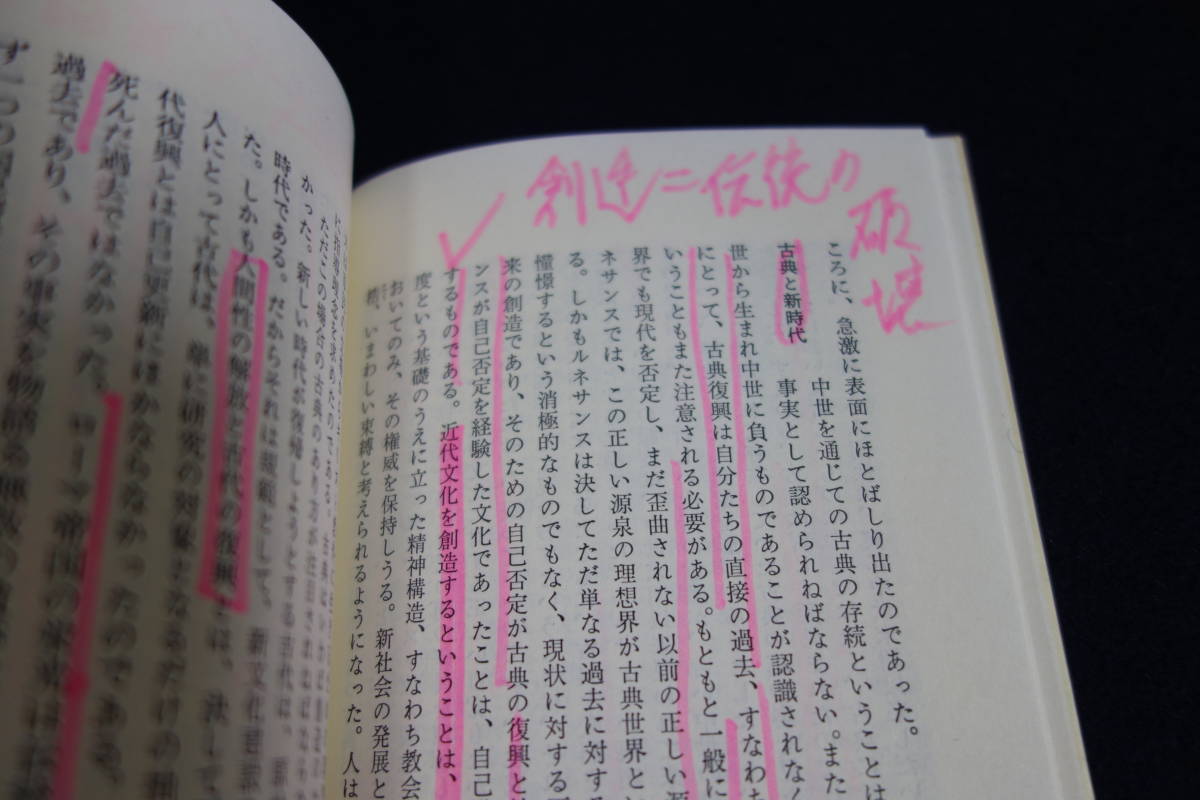 創造＝伝統の
破壊
ころに、急激に表面にほとばしり出たのであった。
古典と新時代
中世を通じての古典の存続ということは
事実として認められねばならない。また
世から生まれ中世に負うものであることが認識されなく
にとって、古典復興は自分たちの直接の過去、すなわち
いうこともまた注意される必要がある。もともと一般に
界でも現代を否定し、まだ歪曲されない以前の正しい源
ネサンスでは、この正しい源泉の理想界が古典世界とい
る。しかもルネサンスは決してただ単なる過去に対する
憧憬するという消極的なものでもなく、現状に対する
来の創造であり、そのための自己否定が古典の復興と
ンスが自己否定を経験した文化であったことは、自己
するものである。近代文化を創造するということは、
度という基礎のうえに立った精神構造、すなわち教会
おいてのみ、その権威を保持しうる。新社会の発展と
いまわしい束縛と考えられるようになった。人は
かった。新しい時代が復帰しようとする古代は、
時代である。だからそれは規範として、新文化建設
た。しかも人間性の解放と古代の復興とは、決して、
人にとって古代は、単に研究の対象となるだけの
代復興とは自己更新にほかならなかったのである。
死んだ過去ではなかった。ローマ帝国の栄光は
過去であり、その事実を物語る